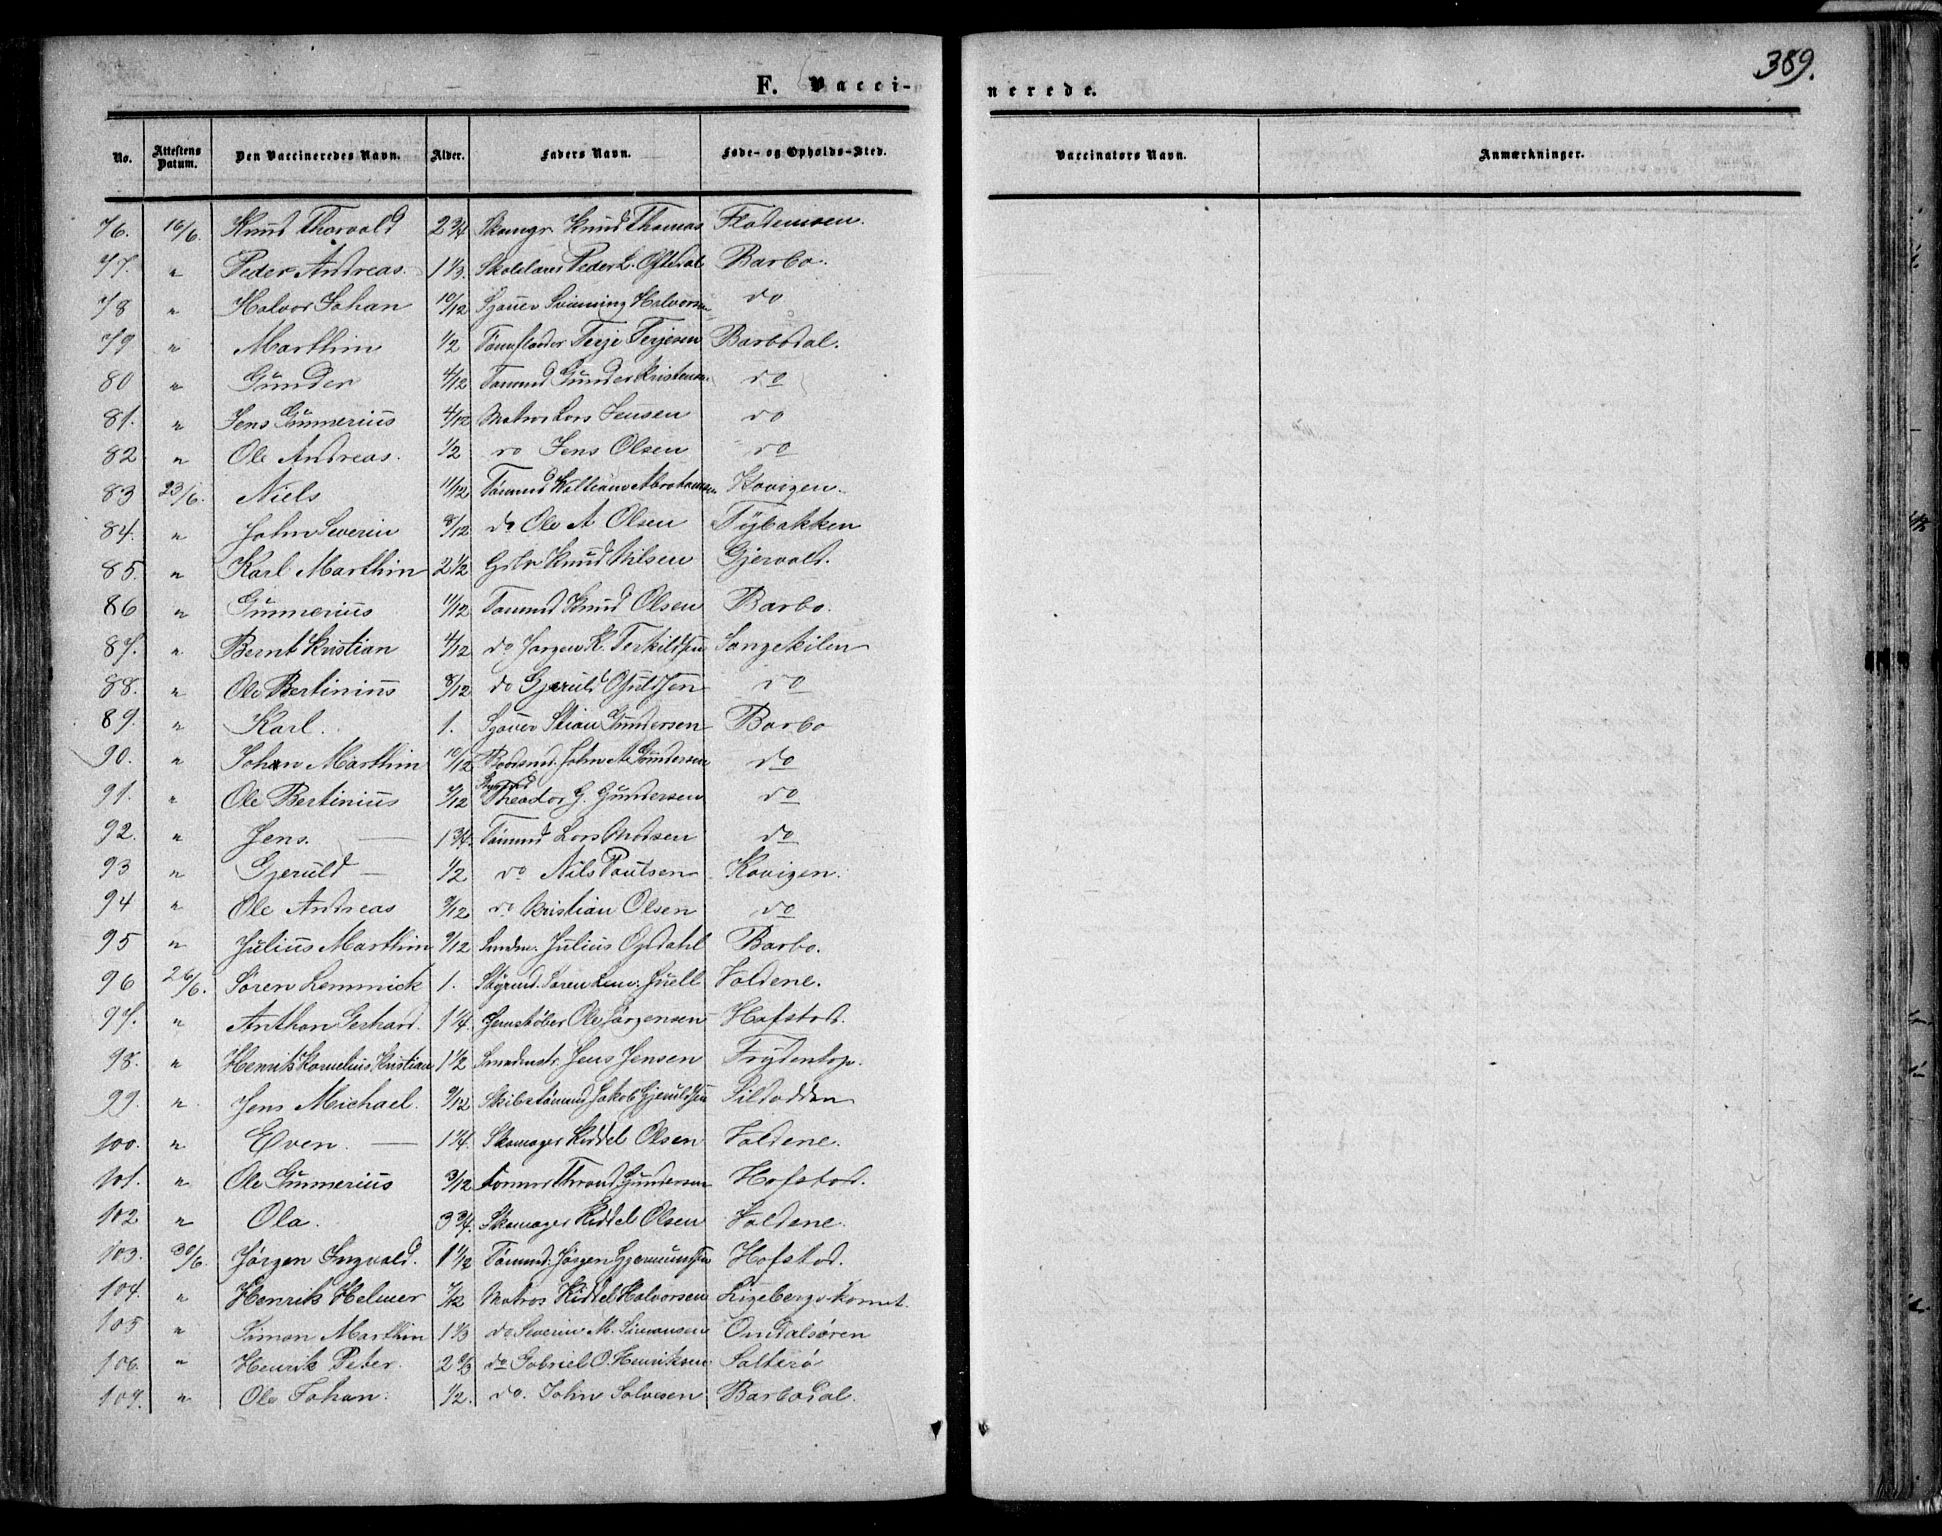 389.
F. Vaccinerede.
No. Attestens Datum. Den Vaccineredes Navn. Alder. Faders Navn. Føde- og Opholds-Sted. Vaccinators Navn. Anmærkninger.
76. 16/6. Knud Thorvald 2 3/4 Skomgr Knud Thomas Flodemoen.
77. " Peder Andreas. 1 1/3. Peder L. Ofstedal Barbo.
78 " Halvor Johan 10/12 Sjouer Halvorsen do
79 " Marthin 1/2 Terje Terjesen Barbodal.
80 " Gunder 4/12 Tømmd Gunder Kristensen do
81. " Jens Gunnerius 4/12 Matros Lars Jensen do
82 " Ole Andreas. 1/2 do Jens Olsen do
83 23/6. Niels 11/12 Tømmd Abrahamsen Kovigen.
84. " John Severin 8/12 do Ole A Olsen Tybakken
85. " Karl Marthin 2 1/2 Knud Nilsen Gjervold.
86 " Gunnerius 11/12 Tømmd Knud Olsen Barbo.
87. " Bernt Kristian 4/12 do Jørgen K. Terkildsen Songekilen
88. " Ole Bertinius 8/12 do Gjeruld do
89. " Karl. 1. Sjouer Stian Gundersen Barbo
90. " Johan Marthin 10/12 Baadsmd. John M Gundersen do
91. " Ole Bertinius 7/12 Theodor G. Gundersen do
92. " Jens. — 1 3/4. Tømmd Lars Madsen do
93 " Gjeruld — 1/2 do Nils Poulsen Kovigen.
94 " Ole Andreas 9/12 do Kristian Olsen do
95 " Julius Marthin 9/12 Julius Opdahl Barbo.
96 26/6. Søren Lemmick 1. Styrmd. Søren Lem. Juell Voldene.
97. " Anthon Gerhard. 1 1/4. Jernstøber Ole Jørgensen Hofstad.
98. " Henrik Kornelius Kristian 1 1/2 Jens Jensen Frydentop.
99. " Jens Michael. 9/12 Skibstømmd Jakob Gjeruldsen Sildodden
100. " Even. — 1 1/4. Skomager Kiddel Olsen Voldene.
101. " Ole Gunnerius 3/12 Tømmd Thrond Gundersen Hofstad.
102 " Ola. 3 3/4. Skomager Kiddel Olsen Voldene.
103. 30/6. Jørgen Ingvald. 1 1/2 Tømmd. Jørgen Gjermundsen Hofstad.
104. " Henrik Helmer 7/12 Matros Kiddel Halvorsen
105 " Simon Marthin 1 1/3 do Severin M. Simonsen Omdalsøren
106. " Henrik Peter. 2 2/3 do Gabriel O. Henriksen Salterø
107. " Ole Johan. 1/2. do. John Salvesen Barbodal.